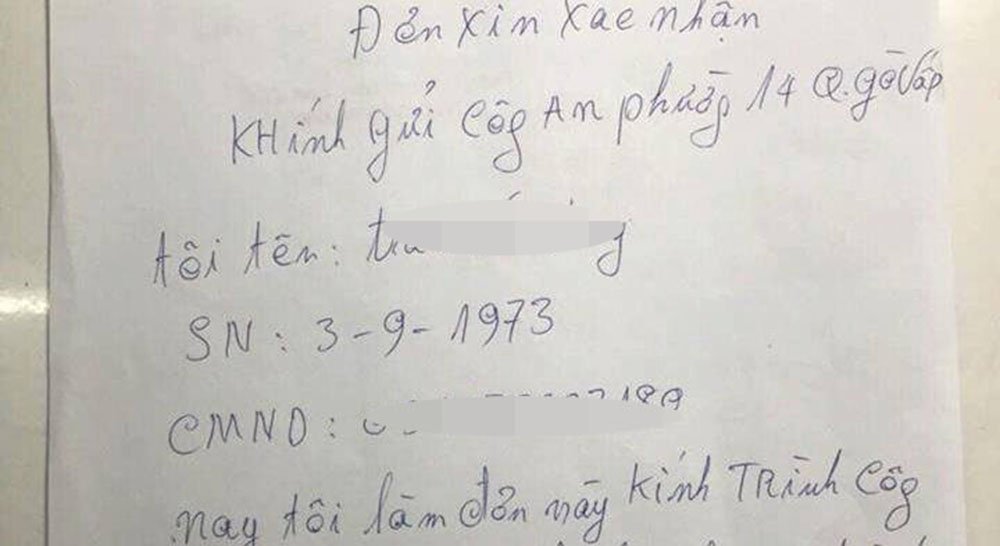 Đơn xin xác nhận
KHính gửi Côg An phườg 14 Q.gò Vấp
tôi tên:
SN: 3-9-1973
CMND:
nay tôi làm đơn này kính TRình Côg